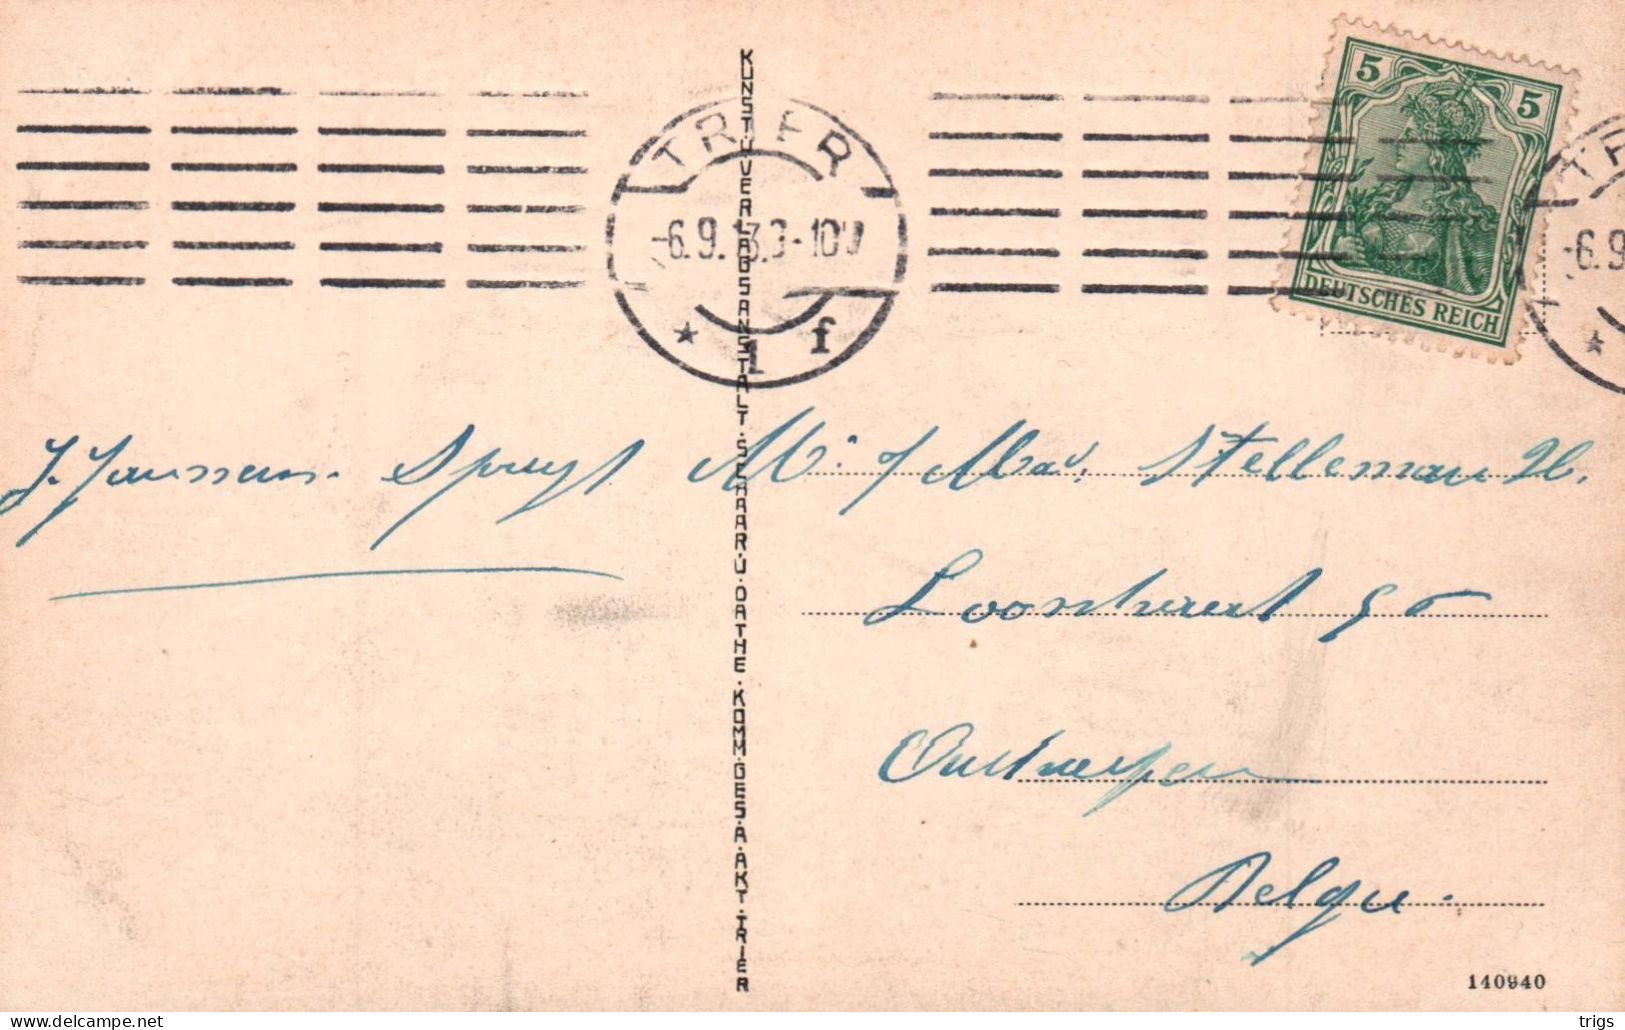 TRIER
-6.9.13.9-10V
* 1 f
5 5
DEUTSCHES REICH
TR
-6.9
*
KUNST.U.VERLAGSANSTALT.SCHAAR.U.DATHE.KOMM.GES.A.AKT.TRIER
J. Janssens. Spruyt
M. / Mad. Stelleman
Antwerpen
Belgie.
140940
delcampe.net
trigs